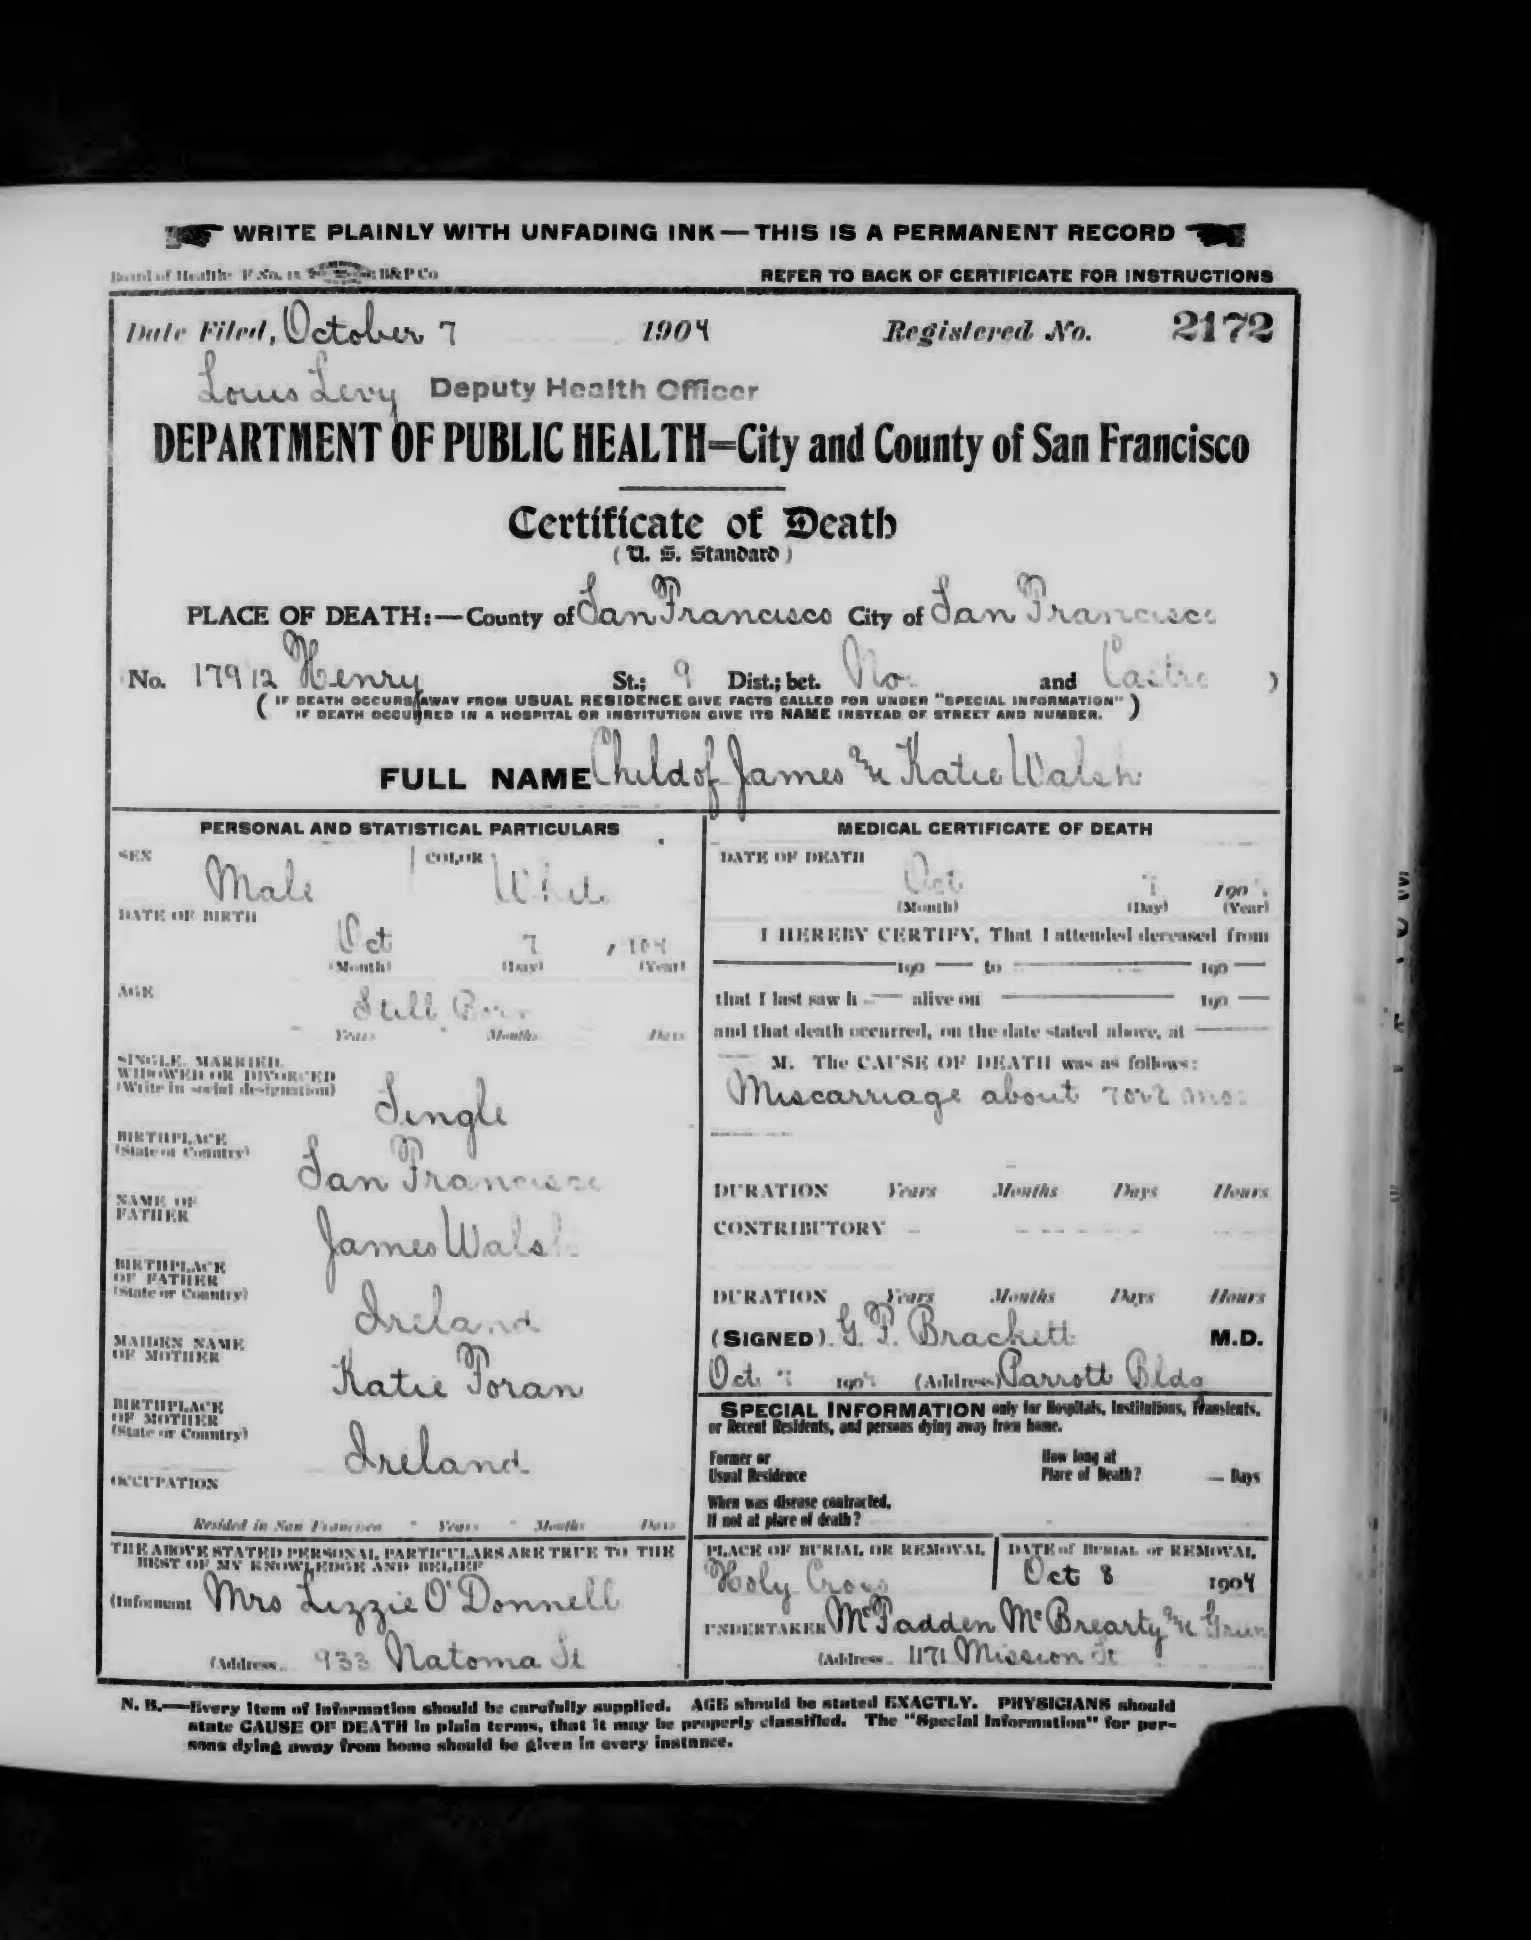 WRITE PLAINLY WITH UNFADING INK — THIS IS A PERMANENT RECORD
Board of Health F. No. B&P Co
REFER TO BACK OF CERTIFICATE FOR INSTRUCTIONS
Date Filed, October 7 1904 Registered No. 2172
Louis Levy Deputy Health Officer
DEPARTMENT OF PUBLIC HEALTH=City and County of San Francisco
Certificate of Death
(U. S. Standard)
PLACE OF DEATH:—County of San Francisco City of San Francisco
No. 179 12 Henry St.; 9 Dist.; bet. Noe and Castro )
( IF DEATH OCCURS AWAY FROM USUAL RESIDENCE GIVE FACTS CALLED FOR UNDER "SPECIAL INFORMATION" )
IF DEATH OCCURRED IN A HOSPITAL OR INSTITUTION GIVE ITS NAME INSTEAD OF STREET AND NUMBER.
FULL NAME Child of James & Katie Walsh
PERSONAL AND STATISTICAL PARTICULARS
SEX Male COLOR White
DATE OF BIRTH
Oct 7 , 104
(Month) (Day) (Year)
AGE Still Born
Years Months Days
SINGLE, MARRIED,
WIDOWED OR DIVORCED
(Write in social designation)
Single
BIRTHPLACE
(State or Country)
San Francisco
NAME OF
FATHER
James Walsh
BIRTHPLACE
OF FATHER
(State or Country)
Ireland
MAIDEN NAME
OF MOTHER
Katie Foran
BIRTHPLACE
OF MOTHER
(State or Country)
Ireland
OCCUPATION
Resided in San Francisco Years Months Days
THE ABOVE STATED PERSONAL PARTICULARS ARE TRUE TO THE
BEST OF MY KNOWLEDGE AND BELIEF
(Informant Mrs Lizzie O'Donnell
(Address 933 Natoma St
MEDICAL CERTIFICATE OF DEATH
DATE OF DEATH
Oct 7 190
(Month) (Day) (Year)
I HEREBY CERTIFY, That I attended deceased from
190 to 190
that I last saw h alive on 190
and that death occurred, on the date stated above, at
M. The CAUSE OF DEATH was as follows:
Miscarriage about mos
DURATION Years Months Days Hours
CONTRIBUTORY
DURATION Years Months Days Hours
(SIGNED) G. F. Brackett M.D.
Oct 7 1904 (Address) Parrott Bldg
SPECIAL INFORMATION only for Hospitals, Institutions, Transients,
or Recent Residents, and persons dying away from home.
Former or
Usual Residence
How long at
Place of Death? Days
When was disease contracted,
If not at place of death?
PLACE OF BURIAL OR REMOVAL
Holy Cross
DATE of BURIAL or REMOVAL
Oct 8 1904
UNDERTAKER McFadden McBrearty & Green
(Address 1171 Mission St
N. B.—Every item of information should be carefully supplied. AGE should be stated EXACTLY. PHYSICIANS should
state CAUSE OF DEATH in plain terms, that it may be properly classified. The "Special Information" for per-
sons dying away from home should be given in every instance.